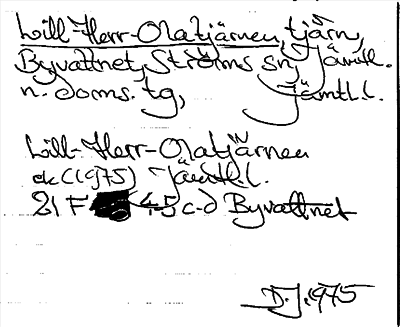 Lill-Herr-Olatjärnen, tjärn,
Byvattnet, Ströms sn, Jämtl.
n. doms. tg, Jämtl.l.
Lill-Herr-Olatjärnen
ek (1975) Jämtl.l.
21 F 45 c-d Byvattnet
D.J. 1975